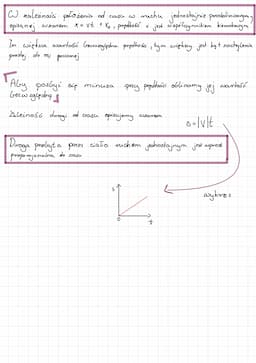 W zależności położenia od czasu w ruchu jednostajnie prostoliniowym,
opisanej wzorem x = vt + x₀, prędkość v jest współczynnikiem kierunkowym
Im większa wartość bezwzględna prędkości, tym większy jest kąt nachylenia
prostej do osi poziomej
Aby pozbyć się minusa przy prędkości obliczamy jej wartość
bezwzględną
Zależność drogi od czasu opisujemy wzorem
s = |v|t
Droga przebyta przez ciało ruchem jednostajnym jest wprost
proporcjonalna do czasu
wykres
s
0
t